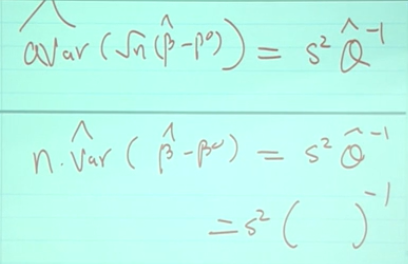 âvar (√n (β̂ - β⁰)) = s² Q̂⁻¹
n. v̂ar ( β̂ - β⁰ ) = s² Q̂⁻¹
= s² ( )⁻¹